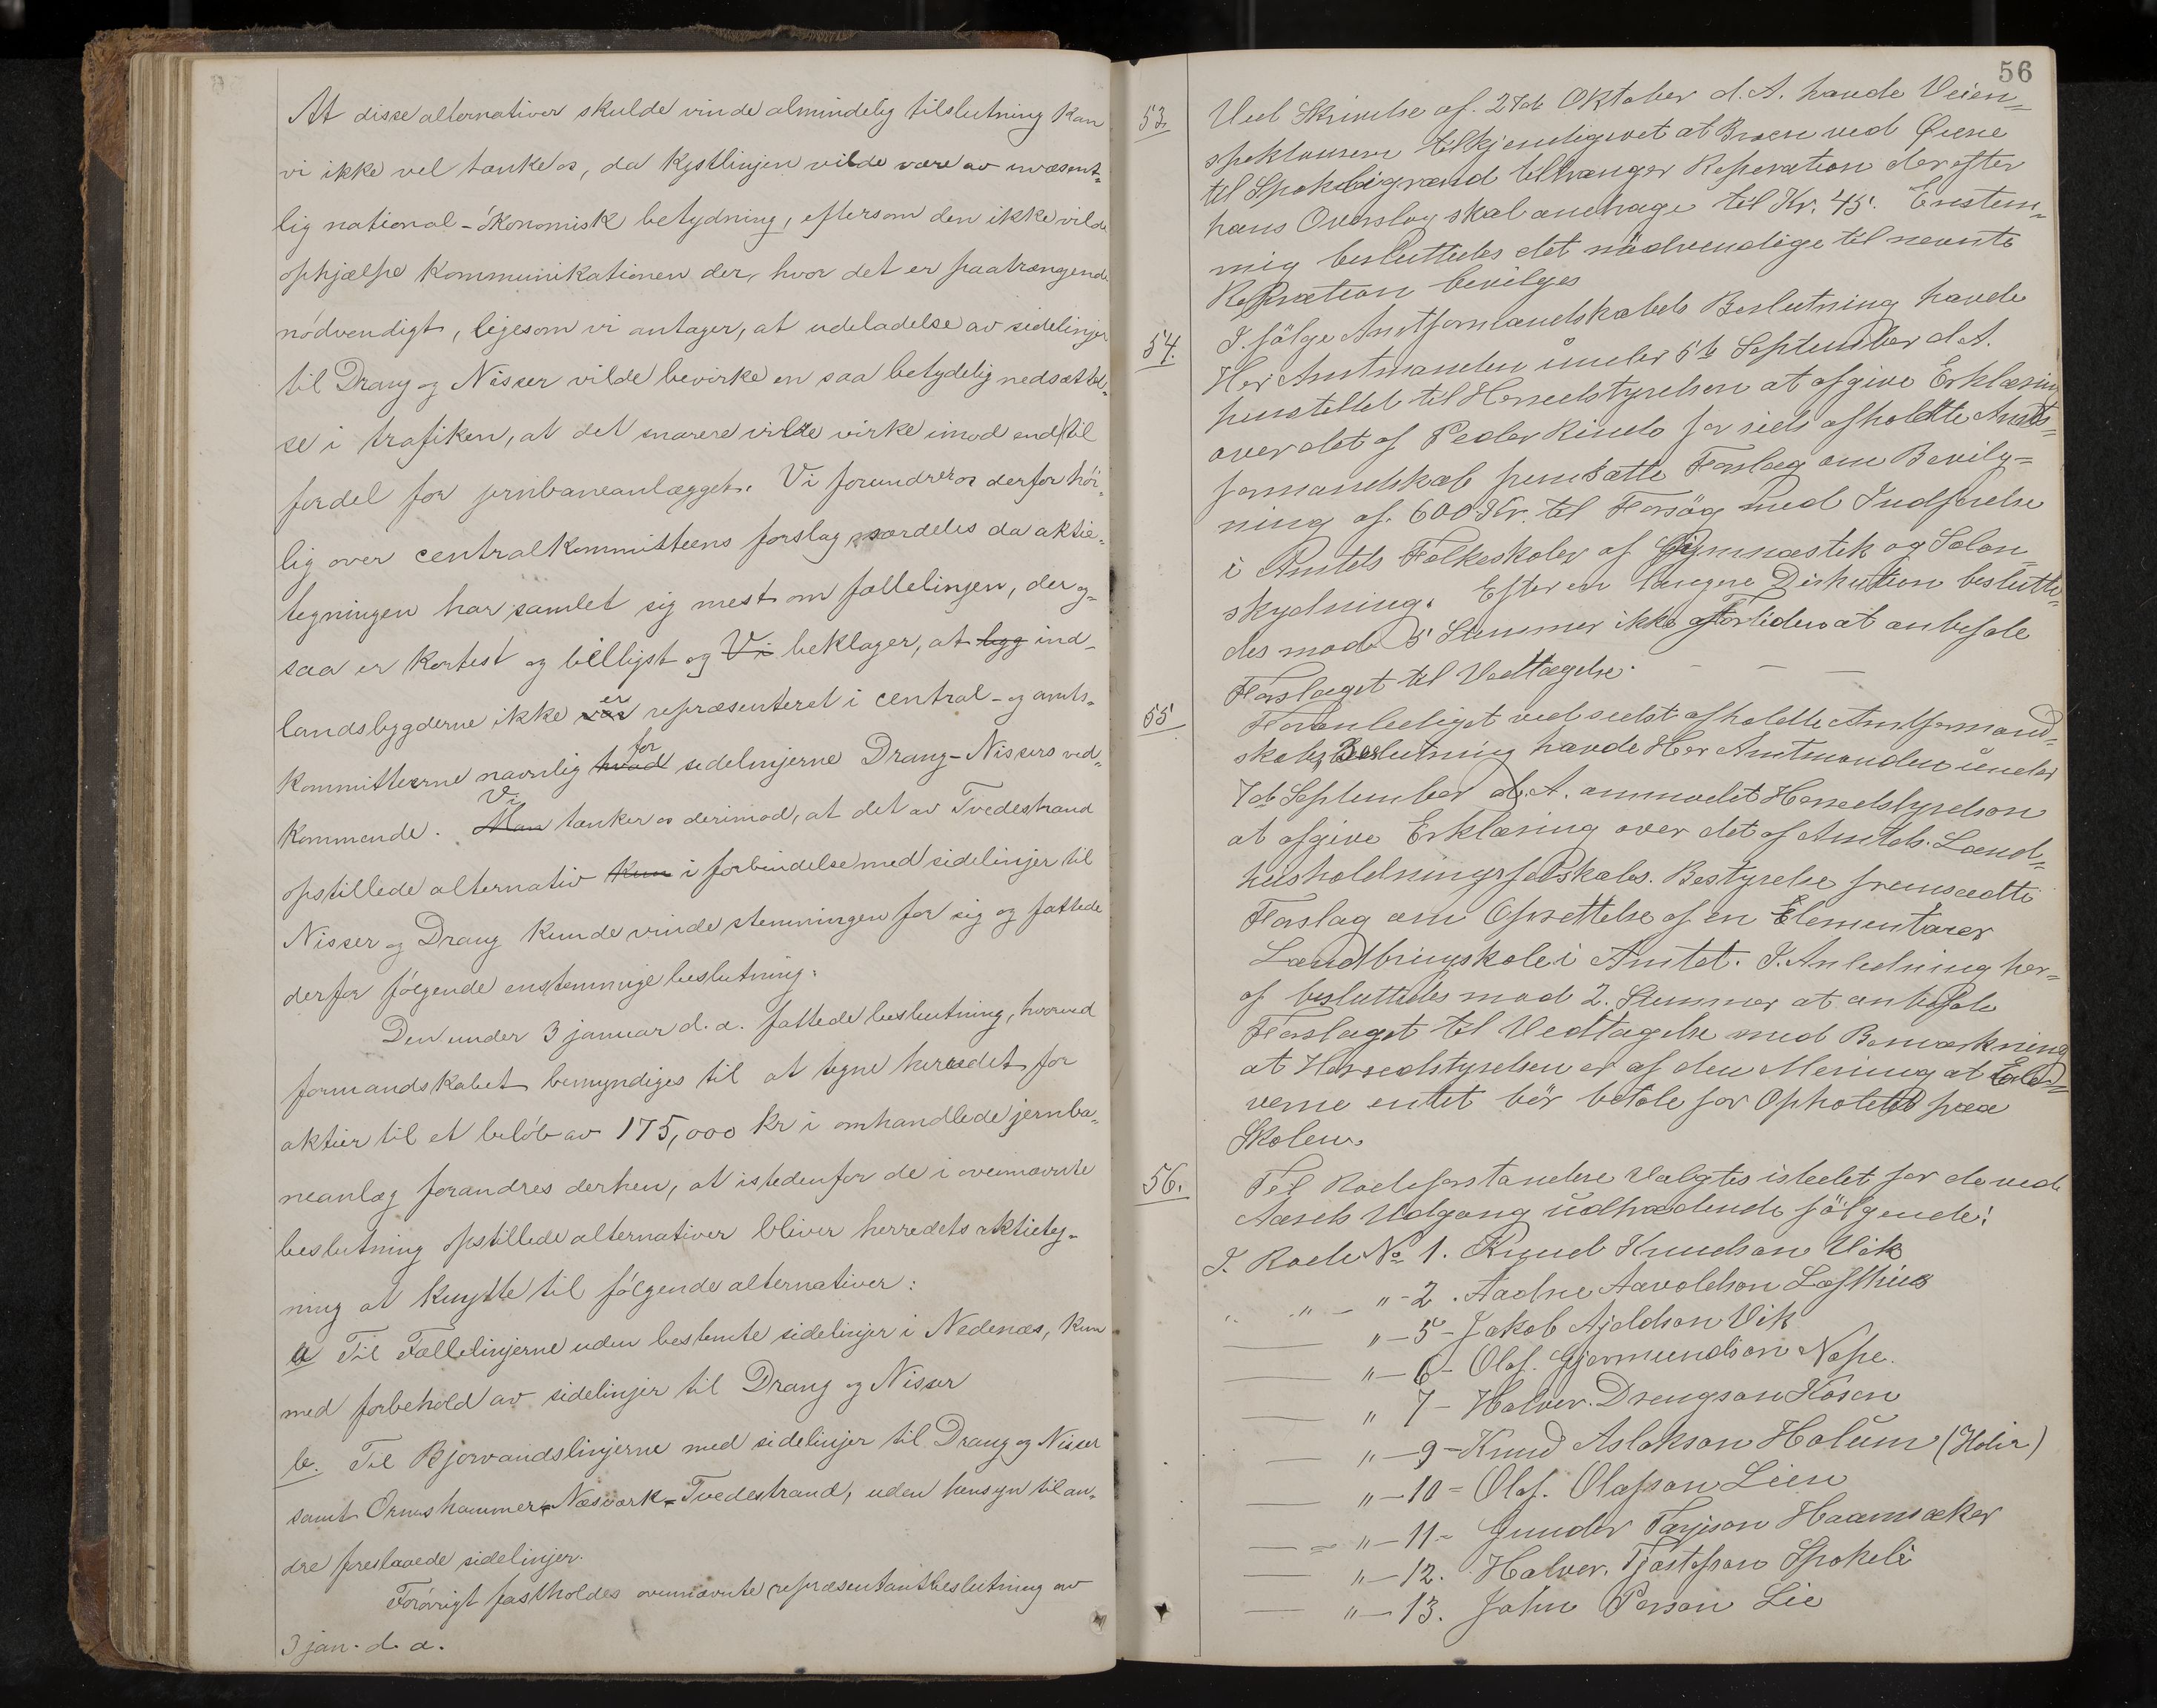 At disse alternativer skulde vinde almindelig tilslutning kan
vi ikke vel tænke os, da kystlinjen vilde være av uvæsent-
lig national-økonomisk betydning, eftersom den ikke vilde
ophjælpe kommunikationen der, hvor det er paatrængende
nödvendigt, ligesom vi antager, at udeladelse av sidelinjer
til Drang og Nisser vilde bevirke en saa betydelig nedsættel-
se i trafiken, at det snarere vilde virke imod end til
fordel for jernbaneanlægget. Vi forundrer os derfor høi-
lig over centralkommitteens forslag, særdeles da aktie-
tegningen har samlet sig mest om fællelinjen, der og-
saa er kortest og billigst og Vi beklager, at bygg ind-
landsbygderne ikke var er repræsenteret i central- og amts-
kommitteerne navnlig hvad for sidelinjerne Drang-Nissers ved-
kommende. Man Vi tænker os derimod, at det av Tvedestrand
opstillede alternativ kun i forbindelse med sidelinjer til
Nisser og Drang kunde vinde stemningen for sig og fattede
derfor følgende enstemmige beslutning:
Den under 3 januar d. a. fattede beslutning, hvorved
formandskabet bemyndiges til at tegne herredet for
aktier til et beløb av 175,000 kr i omhandlede jernba-
neanlæg forandres derhen, at istedenfor de i ovennævnte
beslutning opstillede alternativer bliver herredets aktieteg-
ning at knytte til følgende alternativer:
a Til Fællelinjerne uden bestemte sidelinjer i Nedenæs, kun
med forbehold av sidelinjer til Drang og Nisser
b. Til Bjorvandslinjerne med sidelinjer til Drang og Nisser
samt Ornehammer-Næsværk-Tvedestrand, uden hensyn til an-
dre foreslaaede sidelinjer.
Forøvrigt fastholdes ovennævnte repræsentantbeslutning av
3 jan. d. a.
56
53. Ved Skrivelse af 27de Oktober d.A. havde Veiin-
spektøren tilkjendegivet at Broen ved Øiene
til Spokeligrænd tiltrænger Reperation der efter
hans Overslag skal andrage til Kr. 45. Enstem-
mig besluttedes det nödvendige til nevnte
Repration bevilges
54. I fölge Amtformandskabets Beslutning havde
Her Amtmanden under 5te September d.A.
henstillet til Herredstyrelsen at afgive Erklæring
over det af Peder Rinde for sidst afholdte Amts-
formandskab fremsatte Forslag om Bevilg-
ning af 600 Kr. til Forsög med Indförelse
i Amtets Folkeskoler af Gymnastik og Salon-
skydning. Efter en længere Diskution beslutte-
des mod 5 Stemmer ikke for tiden at anbefale
Forslaget til Vedtagelse.
55 Foranlediget ved sidst afholdte Amtformand-
skabs Beslutning havde Her Amtmanden under
7de September d.A. anmodet Herredstyrelsen
at afgive Erklæring over det af Amtets Land-
husholdningsselskabs Bestyrelse fremsadte
Forslag om Oprettelse af en Elementærer
Landbrugskole i Amtet. I Anledning her-
af besluttedes mod 2. Stemmer at anbefale
Forslaget til Vedtagelse med Bemærkning
at Herredstyrelsen er af den Mening at Ele-
verne intet bör betale for Opholdet paa
Skolen.
56. Til Rodeforstandere valgtes istedet for de ved
Aarets Udgang udtrædende fölgende:
I. Rode No 1. Knud Knudson Vik
" " - " - 2. Aadne Aavoldson Lofthus
" - 5 - Jakob Ajaldson Vik
" - 6 - Olaf Gjermundson Nape.
" 7 - Halvor Drengson Kosen
" - 9 - Knud Aslakson Holum (Holir)
" - 10 - Olaf Olafson Lien
" - 11 - Gunder Tarjeson Haamsaker
" - 12. Halvor Tjostofson Spokeli
" - 13. John Person Lie